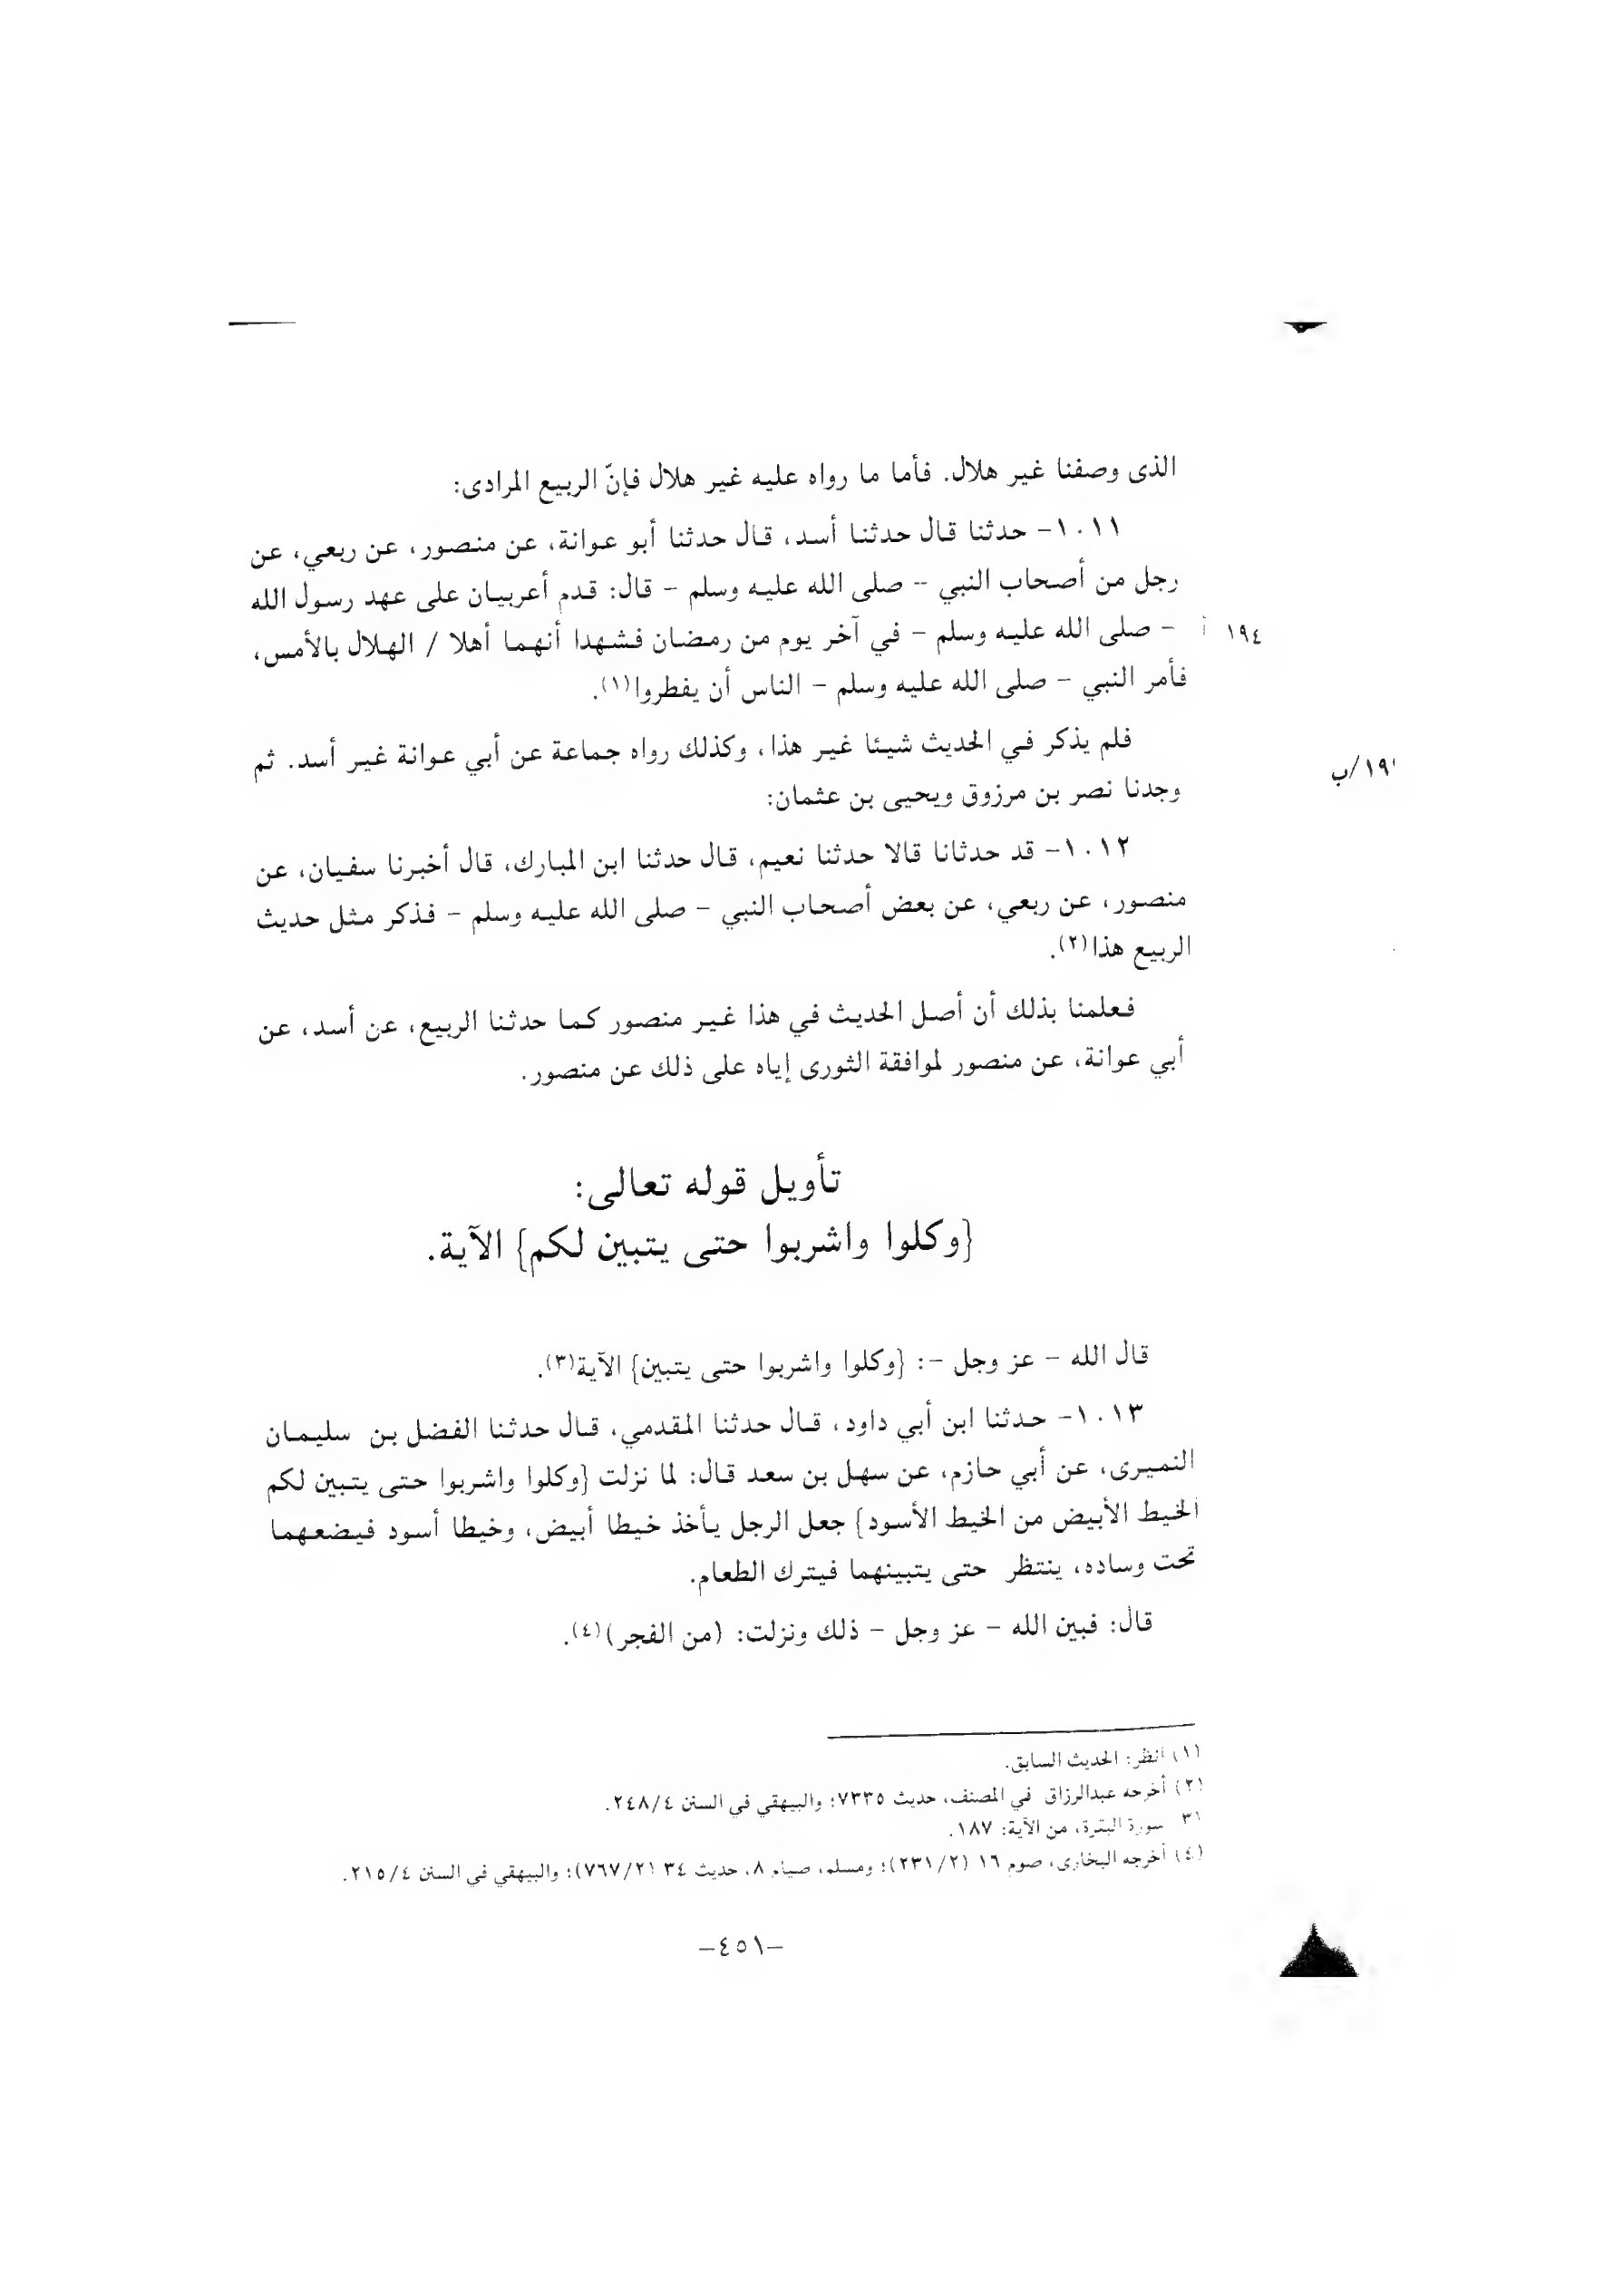 الذى وصفنا غير هلال. فأما ما رواه عليه غير هلال فإنّ الربيع المرادى:
١٠١١- حدثنا قال حدثنا أسد، قال حدثنا أبو عوانة، عن منصور، عن ربعي، عن
رجل من أصحاب النبي -- صلى الله عليه وسلم - قال: قدم أعربيان على عهد رسول الله
- صلى الله عليه وسلم - في آخر يوم من رمضان فشهدا أنهما أهلا / الهلال بالأمس،
١٩٤ أ
فأمر النبي - صلى الله عليه وسلم - الناس أن يفطروا(١).
فلم يذكر في الحديث شيئا غير هذا، وكذلك رواه جماعة عن أبي عوانة غير أسد. ثم
/ب
وجدنا نصر بن مرزوق ويحيى بن عثمان:
١٠١٢- قد حدثانا قالا حدثنا نعيم، قال حدثنا ابن المبارك، قال أخبرنا سفيان، عن
منصور، عن ربعي، عن بعض أصحاب النبي - صلى الله عليه وسلم - فذكر مثل حديث
الربيع هذا(٢).
فعلمنا بذلك أن أصل الحديث في هذا غير منصور كما حدثنا الربيع، عن أسد، عن
أبي عوانة، عن منصور لموافقة الثورى إياه على ذلك عن منصور.
تأويل قوله تعالى:
{وكلوا واشربوا حتى يتبين لكم} الآية.
قال الله - عز وجل -: {وكلوا واشربوا حتى يتبين} الآية(٣).
١٠١٣- حدثنا ابن أبي داود، قال حدثنا المقدمي، قال حدثنا الفضل بن سليمان
النميرى، عن أبي حازم، عن سهل بن سعد قال: لما نزلت {وكلوا واشربوا حتى يتبين لكم
الخيط الأبيض من الخيط الأسود} جعل الرجل يأخذ خيطا أبيض، وخيطا أسود فيضعهما
تحت وساده، ينتظر حتى يتبينهما فيترك الطعام.
قال: فبين الله - عز وجل - ذلك ونزلت: (من الفجر)(٤).
(١) انظر: الحديث السابق.
(٢) أخرجه عبدالرزاق في المصنف، حديث ٧٣٣٥؛ والبيهقي في السنن ٢٤٨/٤.
(٣) سورة البقرة، من الآية: ١٨٧.
(٤) أخرجه البخارى، صوم ١٦ (٢٣١/٢)؛ ومسلم، صيام ٨، حديث ٣٤ (٧٦٧/٢)؛ والبيهقي في السنن ٢١٥/٤.
-٤٥١-